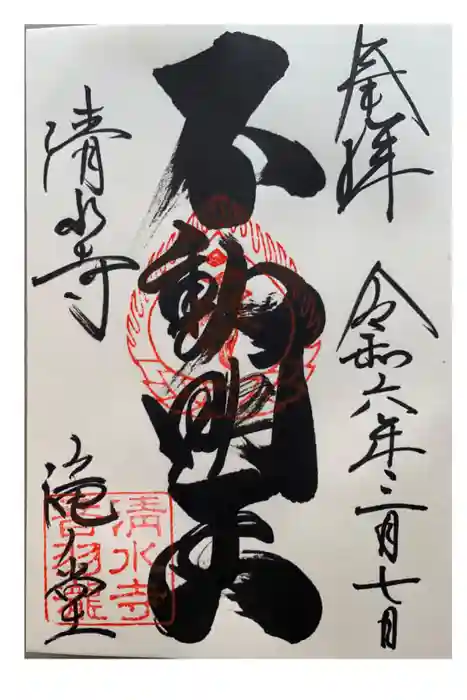 奉拝
令和六年三月七日
不動明王
清水寺
滝ノ堂
清水寺
音羽瀧